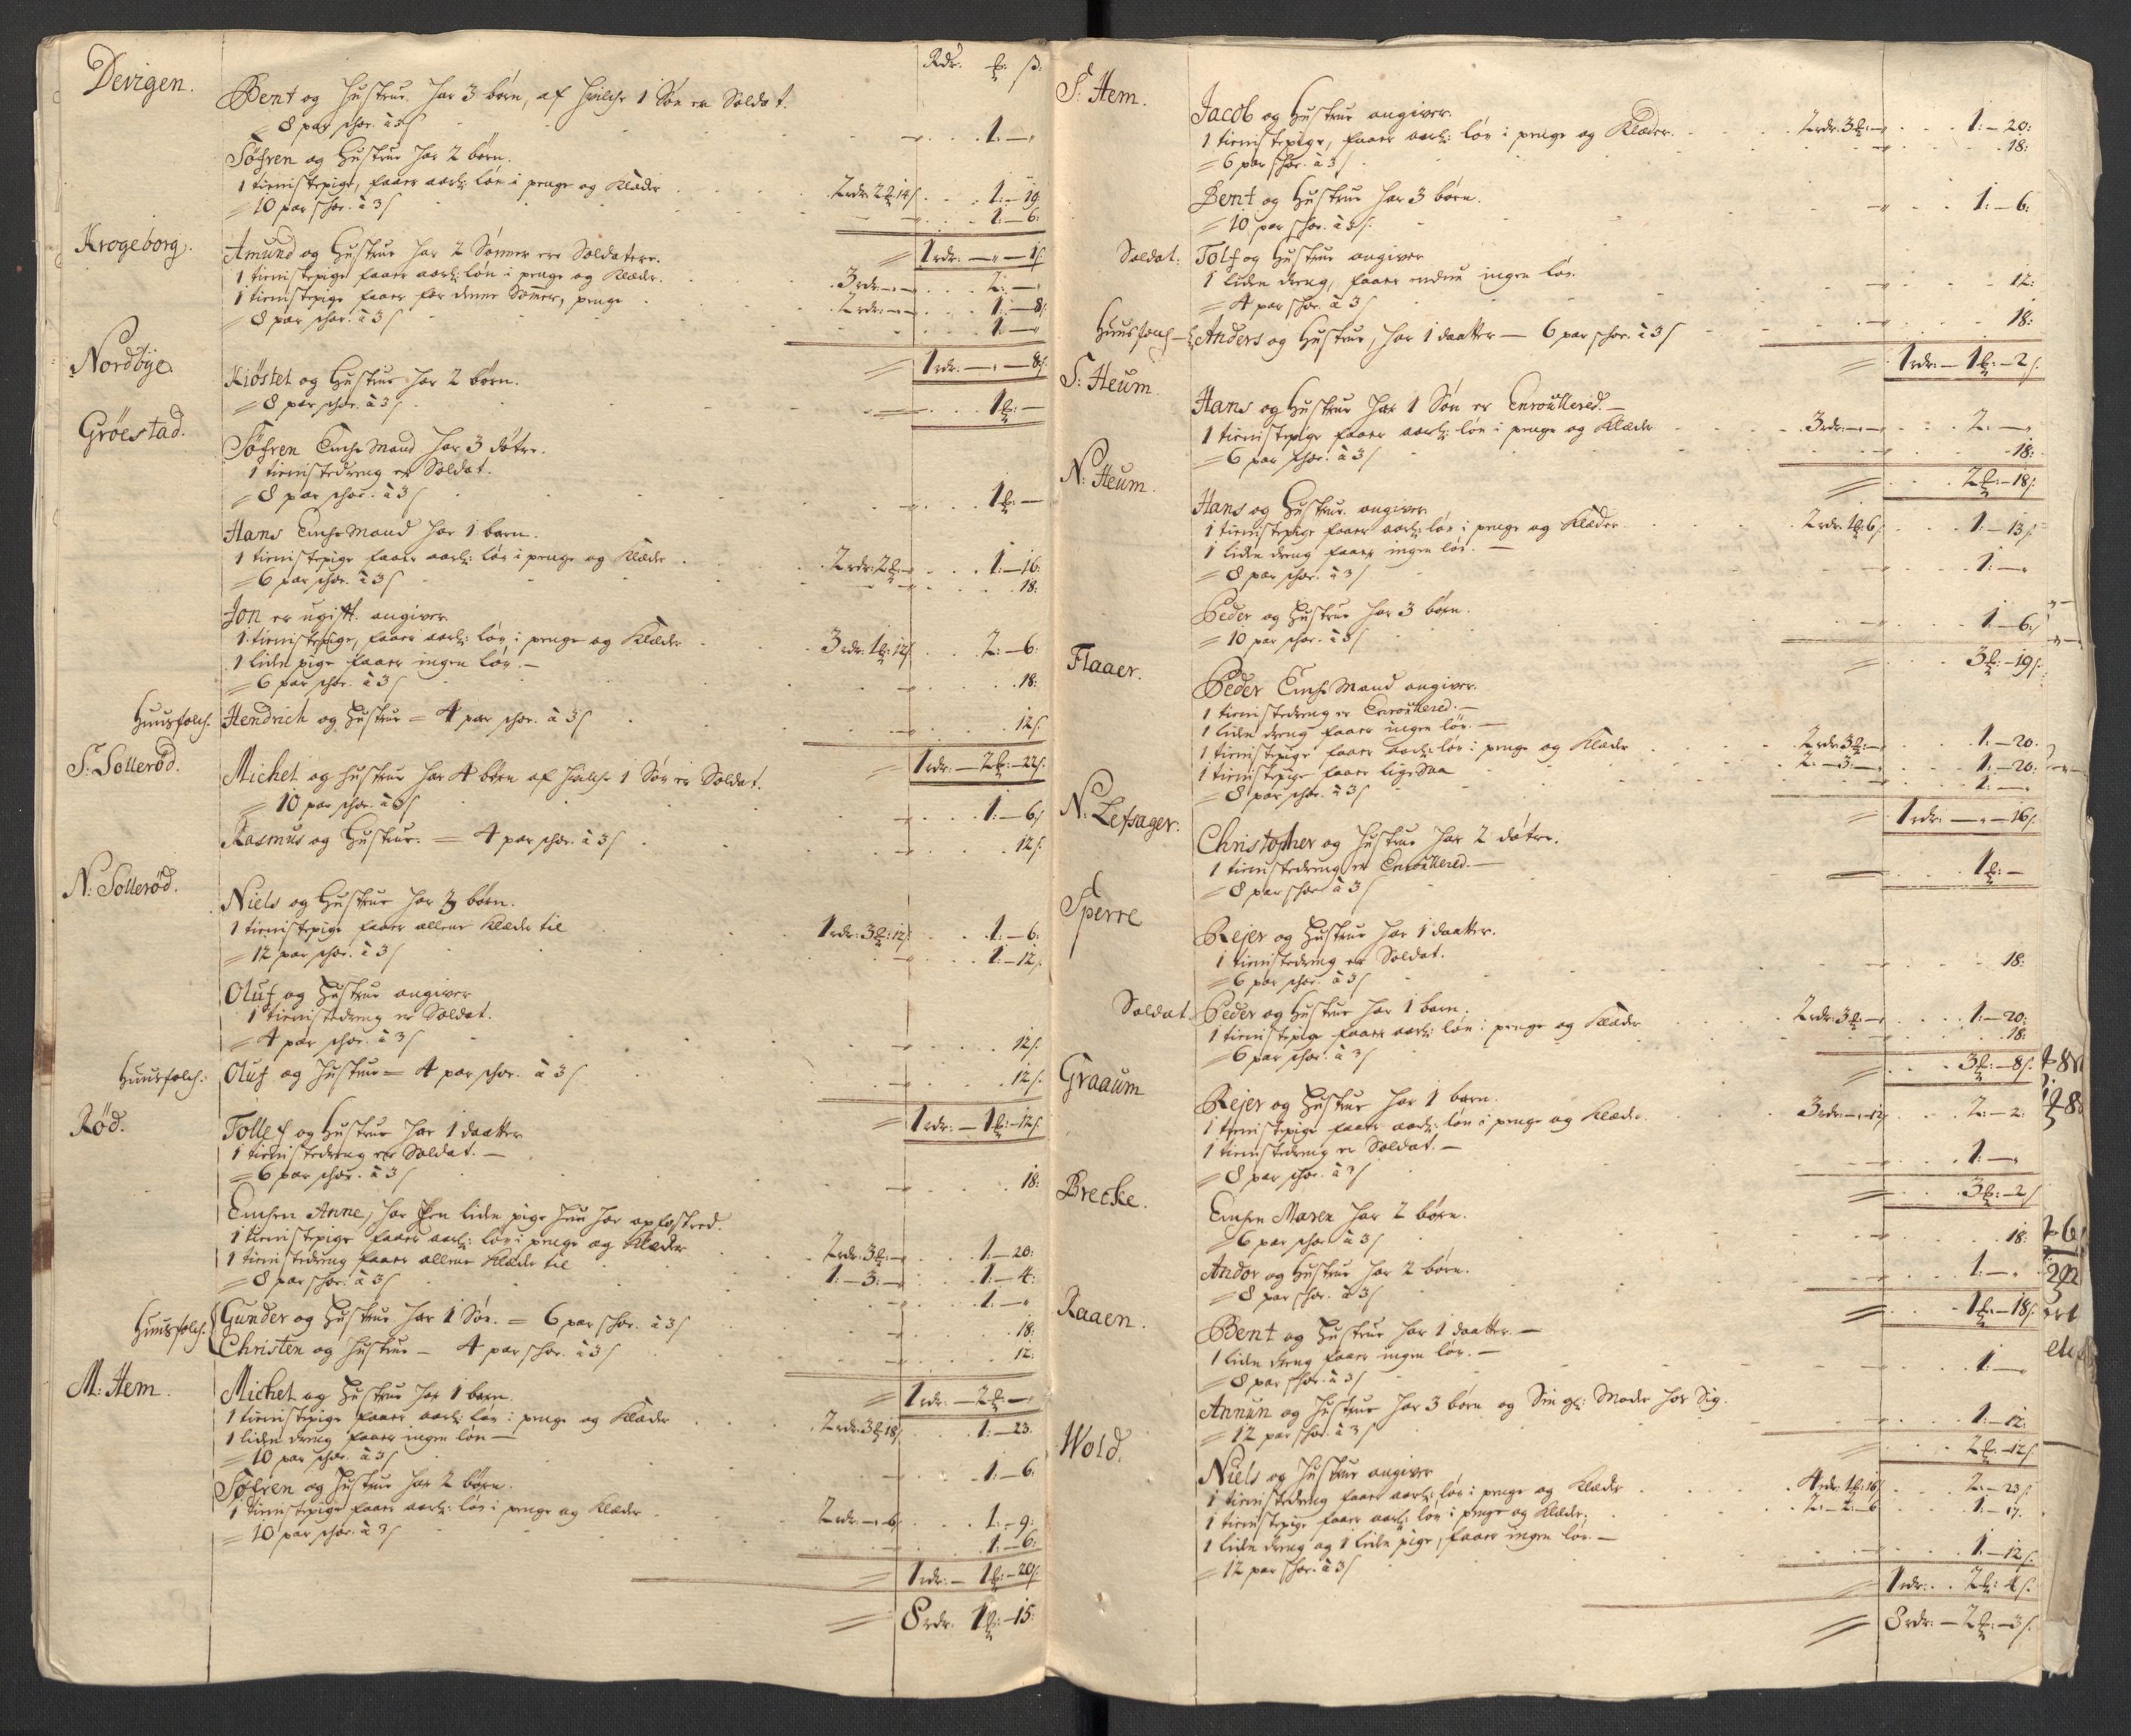 Rdr: ƺ: ſs:
Devigen.
Bent og Hustrue har 3 børn, af hvilche 1 Søn er Soldat.
= 8 par schoe. à 3ſ — 1: —
Søfren og Hustrue har 2 børn.
1 tienistepige, faaer aarl: løn i penge og Klæder 2 rdr: 2ƺ: 14ſ 1: — 19:
= 10 par schoe. à 3ſ 1: — 6:
= 1 rdr: — " — 1ſ:
Krogeborg.
Amund og Hustrue har 2 Sønner ere Soldatere.
1 tienistepige faaer aarl: løn i penge og Klæder. 3 rdr: — " — 2: —
1 tienistepige faaer for denne Sommer, penge 2 rdr: — " — 1: — 8:
= 8 par schoe. à 3ſ 1: —
= 1 rdr: — " — 8ſ:
Nordbye
Kiöstel og Hustrue har 2 børn.
= 8 par schoe. à 3ſ 1ƺ: —
Gröestad.
Søfren Enche Mand har 3 døtre.
1 tienistedreng er Soldat.
= 8 par schoe. à 3ſ 1ƺ: —
Hans Enche Mand har 1 barn.
1 tienistepige faaer aarl: løn i penge og Klæder 2 rdr: 2ƺ: — 1: — 16:
= 6 par schoe. à 3ſ 18:
Jon er ugift. angiver
1 tienistepige, faaer aarl: løn i penge og Klæder 3 rdr: 1ƺ: 12ſ 2: — 6:
1 liden pige faaer ingen løn. —
= 6 par schoe. à 3ſ 18:
Huusfolch. Hendrich og Hustrue = 4 par schoe. à 3ſ 12ſ:
= 1 rdr: — 2ƺ: — 22ſ:
S: Solleröd.
Michel og Hustrue har 4 børn af hvilche 1 Søn er Soldat.
= 10 par schoe. à 3ſ 1: — 6ſ
Rasmus og Hustrue. = 4 par schoe. à 3ſ 12ſ:
N: Solleröd.
Niels og Hustrue har 3 børn.
1 tienistepige faaer allene Klæder til 1 rdr: 3ƺ: 12ſ 1: — 6:
= 12 par schoe. à 3ſ 1: — 12ſ:
Oluf og Hustrue angiver
1 tienistedreng er Soldat.
= 4 par schoe. à 3ſ 12ſ:
Huusfolch: Oluf og Hustrue = 4 par schoe. à 3ſ 12ſ:
= 1 rdr: — 1ƺ: — 12ſ:
Röd.
Tollef og Hustrue har 1 daatter
1 tienistedreng er Soldat. —
= 6 par schoe. à 3ſ 18:
Enchen Anne, har en liden pige hun har opfostred.
1 tienistepige faaer aarl: løn i penge og Klæder 2 rdr: 3ƺ: — 1: — 20:
1 tienistedreng faaer allene Klæder til 1: — 3: — 1: — 4:
= 8 par schoe: à 3ſ 1: —
Huusfolch. Gunder og Hustrue har 1 Søn. = 6 par schoe. à 3ſ 18:
Christen og Hustrue — 4 par schoe. à 3ſ 12:
= 1 rdr: — 2ƺ: —
M: Hem.
Michel og Hustrue har 1 barn.
1 tienistepige faaer aarl: løn i penge og Klæder 2 rdr: 3ƺ 18ſ 1: — 23
1 liden dreng faaer ingen løn —
= 10 par schoe. à 3ſ 1: — 6:
Søfren og Hustrue har 2 børn.
1 tienistepige faaer aarl: løn i penge og Klæder 2 rdr: — " 6ſ 1: — 9:
= 10 par schoe. à 3ſ 1: — 6:
= 1 rdr: — 1ƺ: — 20ſ:
= 8 rdr: 1ƺ: — 15:
S: Hem.
Jacob og Hustrue angiver.
1 tienistepige, faaer aarl: løn i penge og Klæder. 2 rdr: 3ƺ: — 1: — 20:
= 6 par schoe. à 3ſ 18:
Bent og Hustrue har 3 børn.
= 10 par schoe. à 3ſ. 1: — 6:
Soldat: Tolf og Hustrue angiver
1 liden dreng, faaer endnu ingen løn.
= 4 par schoe. à 3ſ 12:
Huusfolch — Anders og Hustrue, har 1 daatter — 6 par schoe. à 3ſ 18:
= 1 rdr: — 1ƺ: — 2ſ.
S: Heum.
Hans og Hustrue har 1 Søn er Enroulered. —
1 tienistepige faaer aarl: løn i penge og Klæder 3 rdr: — " — 2: —
= 6 par schoe. à 3ſ 18:
= 2ƺ: — 18ſ:
N: Heum.
Hans og Hustrue. angiver
1 tienistepige faaer aarl: løn i penge og Klæder. 2 rdr: 1ƺ: 6ſ 1: — 13ſ:
1 liden dreng faaer ingen løn. —
= 8 par schoe. à 3ſ 1: —
Peder og Hustrue har 3 børn.
= 10 par schoe. à 3ſ 1: — 6ſ
= 3ƺ: — 19ſ:
Flaaer.
Peder Enche Mand angiver.
1 tienistedreng er Enroulered. —
1 liden dreng faaer ingen løn. —
1 tienistepige faaer aarl: løn i penge og Klæder 2 rdr: 3ƺ: — 1: — 20:
1 tienistepige faaer lige saa 2: — 3: — 1: — 20:
= 8 par schoe. à 3ſ 1: —
= 1 rdr: — " — 16ſ:
N: Lefsager.
Christopher og Hustrue har 2 døtre.
1 tienistedreng er Enroulered. —
= 8 par schoe à 3ſ 1ƺ: —
Sperre
Rejer og Hustrue har 1 daatter.
1 tienistedreng er Soldat.
= 6 par schoe. à 3ſ 18:
Soldat. Peder og Hustrue har 1 barn.
1 tienistepige faaer aarl: løn i penge og Klæder 2 rdr: 3ƺ: — 1: — 20:
= 6 par schoe. à 3ſ 18:
= 3ƺ: — 8ſ:
Graaum
Rejer og Hustrue har 1 barn.
1 tienistepige faaer aarl: løn i penge og Klæder. 3 rdr: — " — 12ſ 2: — 2:
1 tienistedreng er Soldat. —
= 8 par schoe. à 3ſ 1: —
= 3ƺ: — 2ſ
Brecke.
Enchen Maren har 2 børn.
= 6 par schoe à 3ſ 18:
Andor og Hustrue har 2 børn.
= 8 par schoe. à 3ſ 1: —
= 1ƺ: — 18ſ:
Raaen.
Bent og Hustrue har 1 daatter. —
1 liden dreng faaer ingen løn. —
= 8 par schoe. à 3ſ 1: —
Annun og Hustrue har 3 børn og Sin gl: Moder hos Sig.
= 12 par schoe. à 3ſ 1: — 12:
= 2ƺ: — 12ſ
Wold.
Niels og Hustrue angiver
1 tienistedreng faaer aarl: løn i penge og Klæder 4 rdr: 1ƺ: 16ſ 2: — 23ſ:
1 tienistepige faaer aarl: løn i penge og Klæder. 2: — 2: — 6 1: — 17.
1 liden dreng og 1 liden pige, faaer ingen løn. —
= 12 par schoe. à 3ſ 1: — 12ſ:
= 1 rdr: 2ƺ: 4ſ:
= 8 rdr: — 2ƺ: — 3ſ: